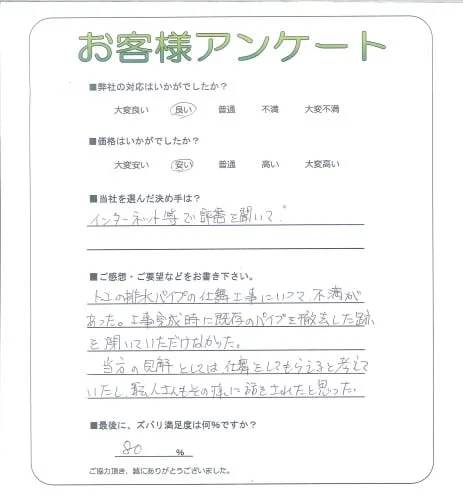 お客様アンケート
■弊社の対応はいかがでしたか？
大変良い 良い 普通 不満 大変不満
■価格はいかがでしたか？
大変安い 安い 普通 高い 大変高い
■当社を選んだ決め手は？
インターネット等で評番を聞いて。
■ご感想・ご要望などをお書き下さい。
トユの排水パイプの仕舞工事について、不満が
あった。工事完成時に既存のパイプを撤去した跡
を聞いていただけなかった。
当方の見解としては仕舞をしてもらえると考えて
いたし、職人さんもその様に話をされたと思った。
■最後に、ズバリ満足度は何%ですか？
80 %
ご協力頂き、誠にありがとうございました。